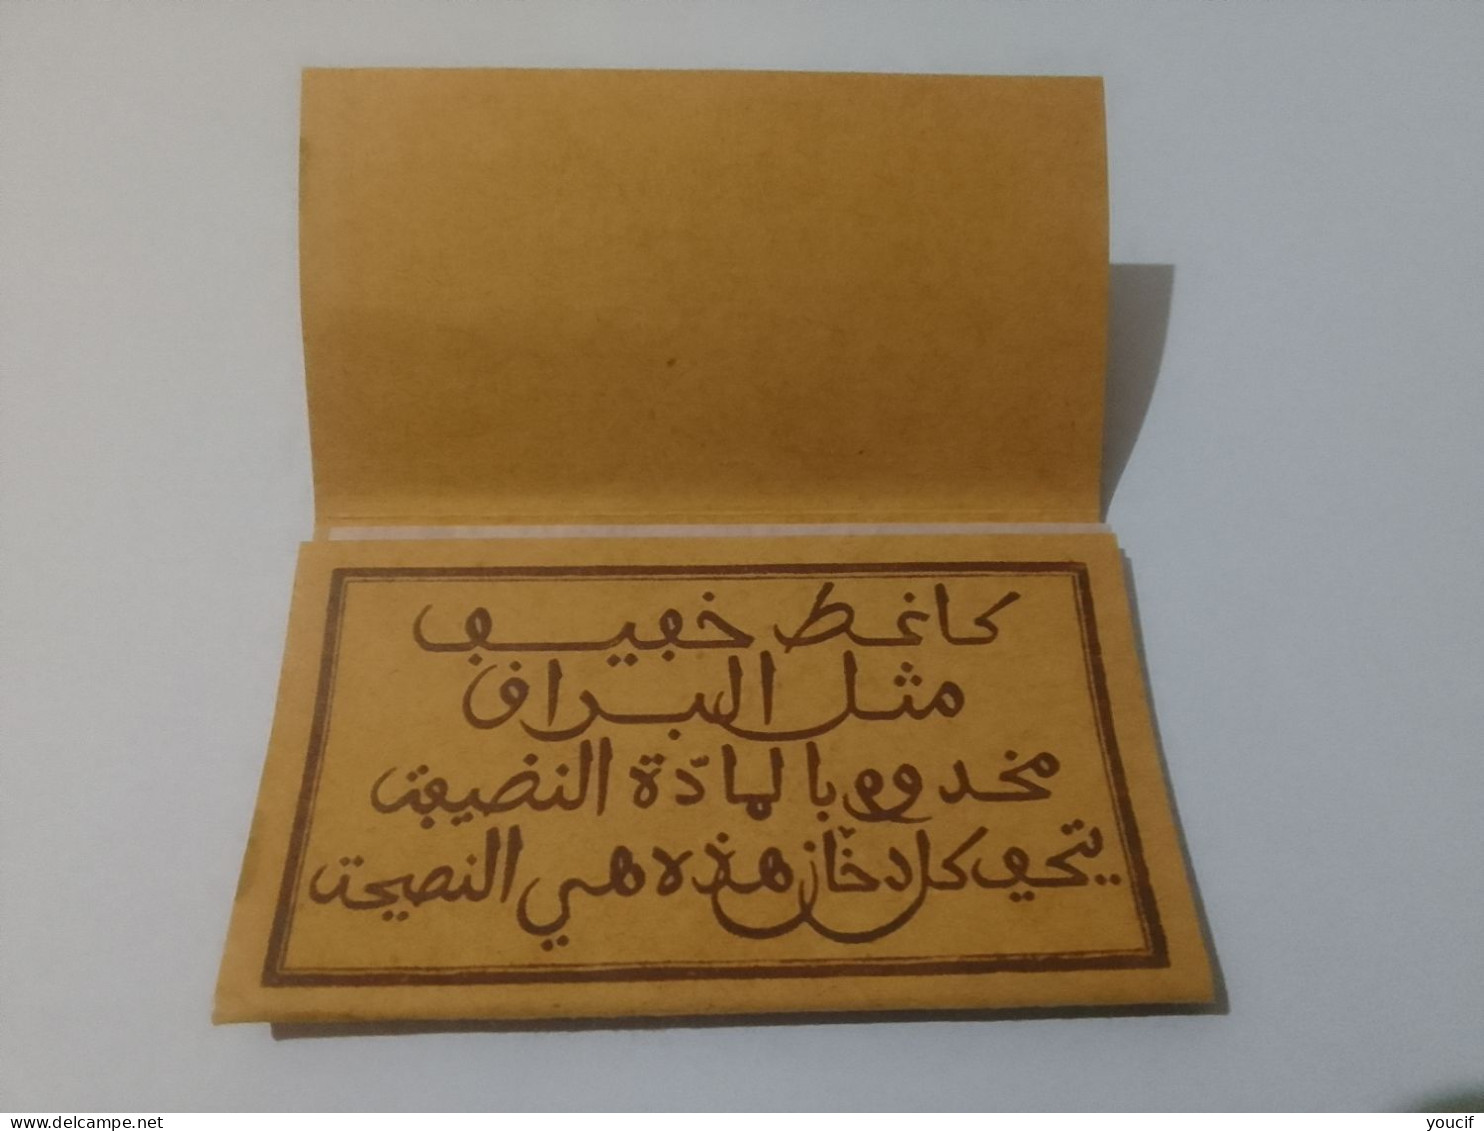 كاغط خفيف
مثل البراق
مخدوم بالمادة النضيفة
يتحف كل دخّان هذه هي النصيحة
www.delcampe.net
youcif